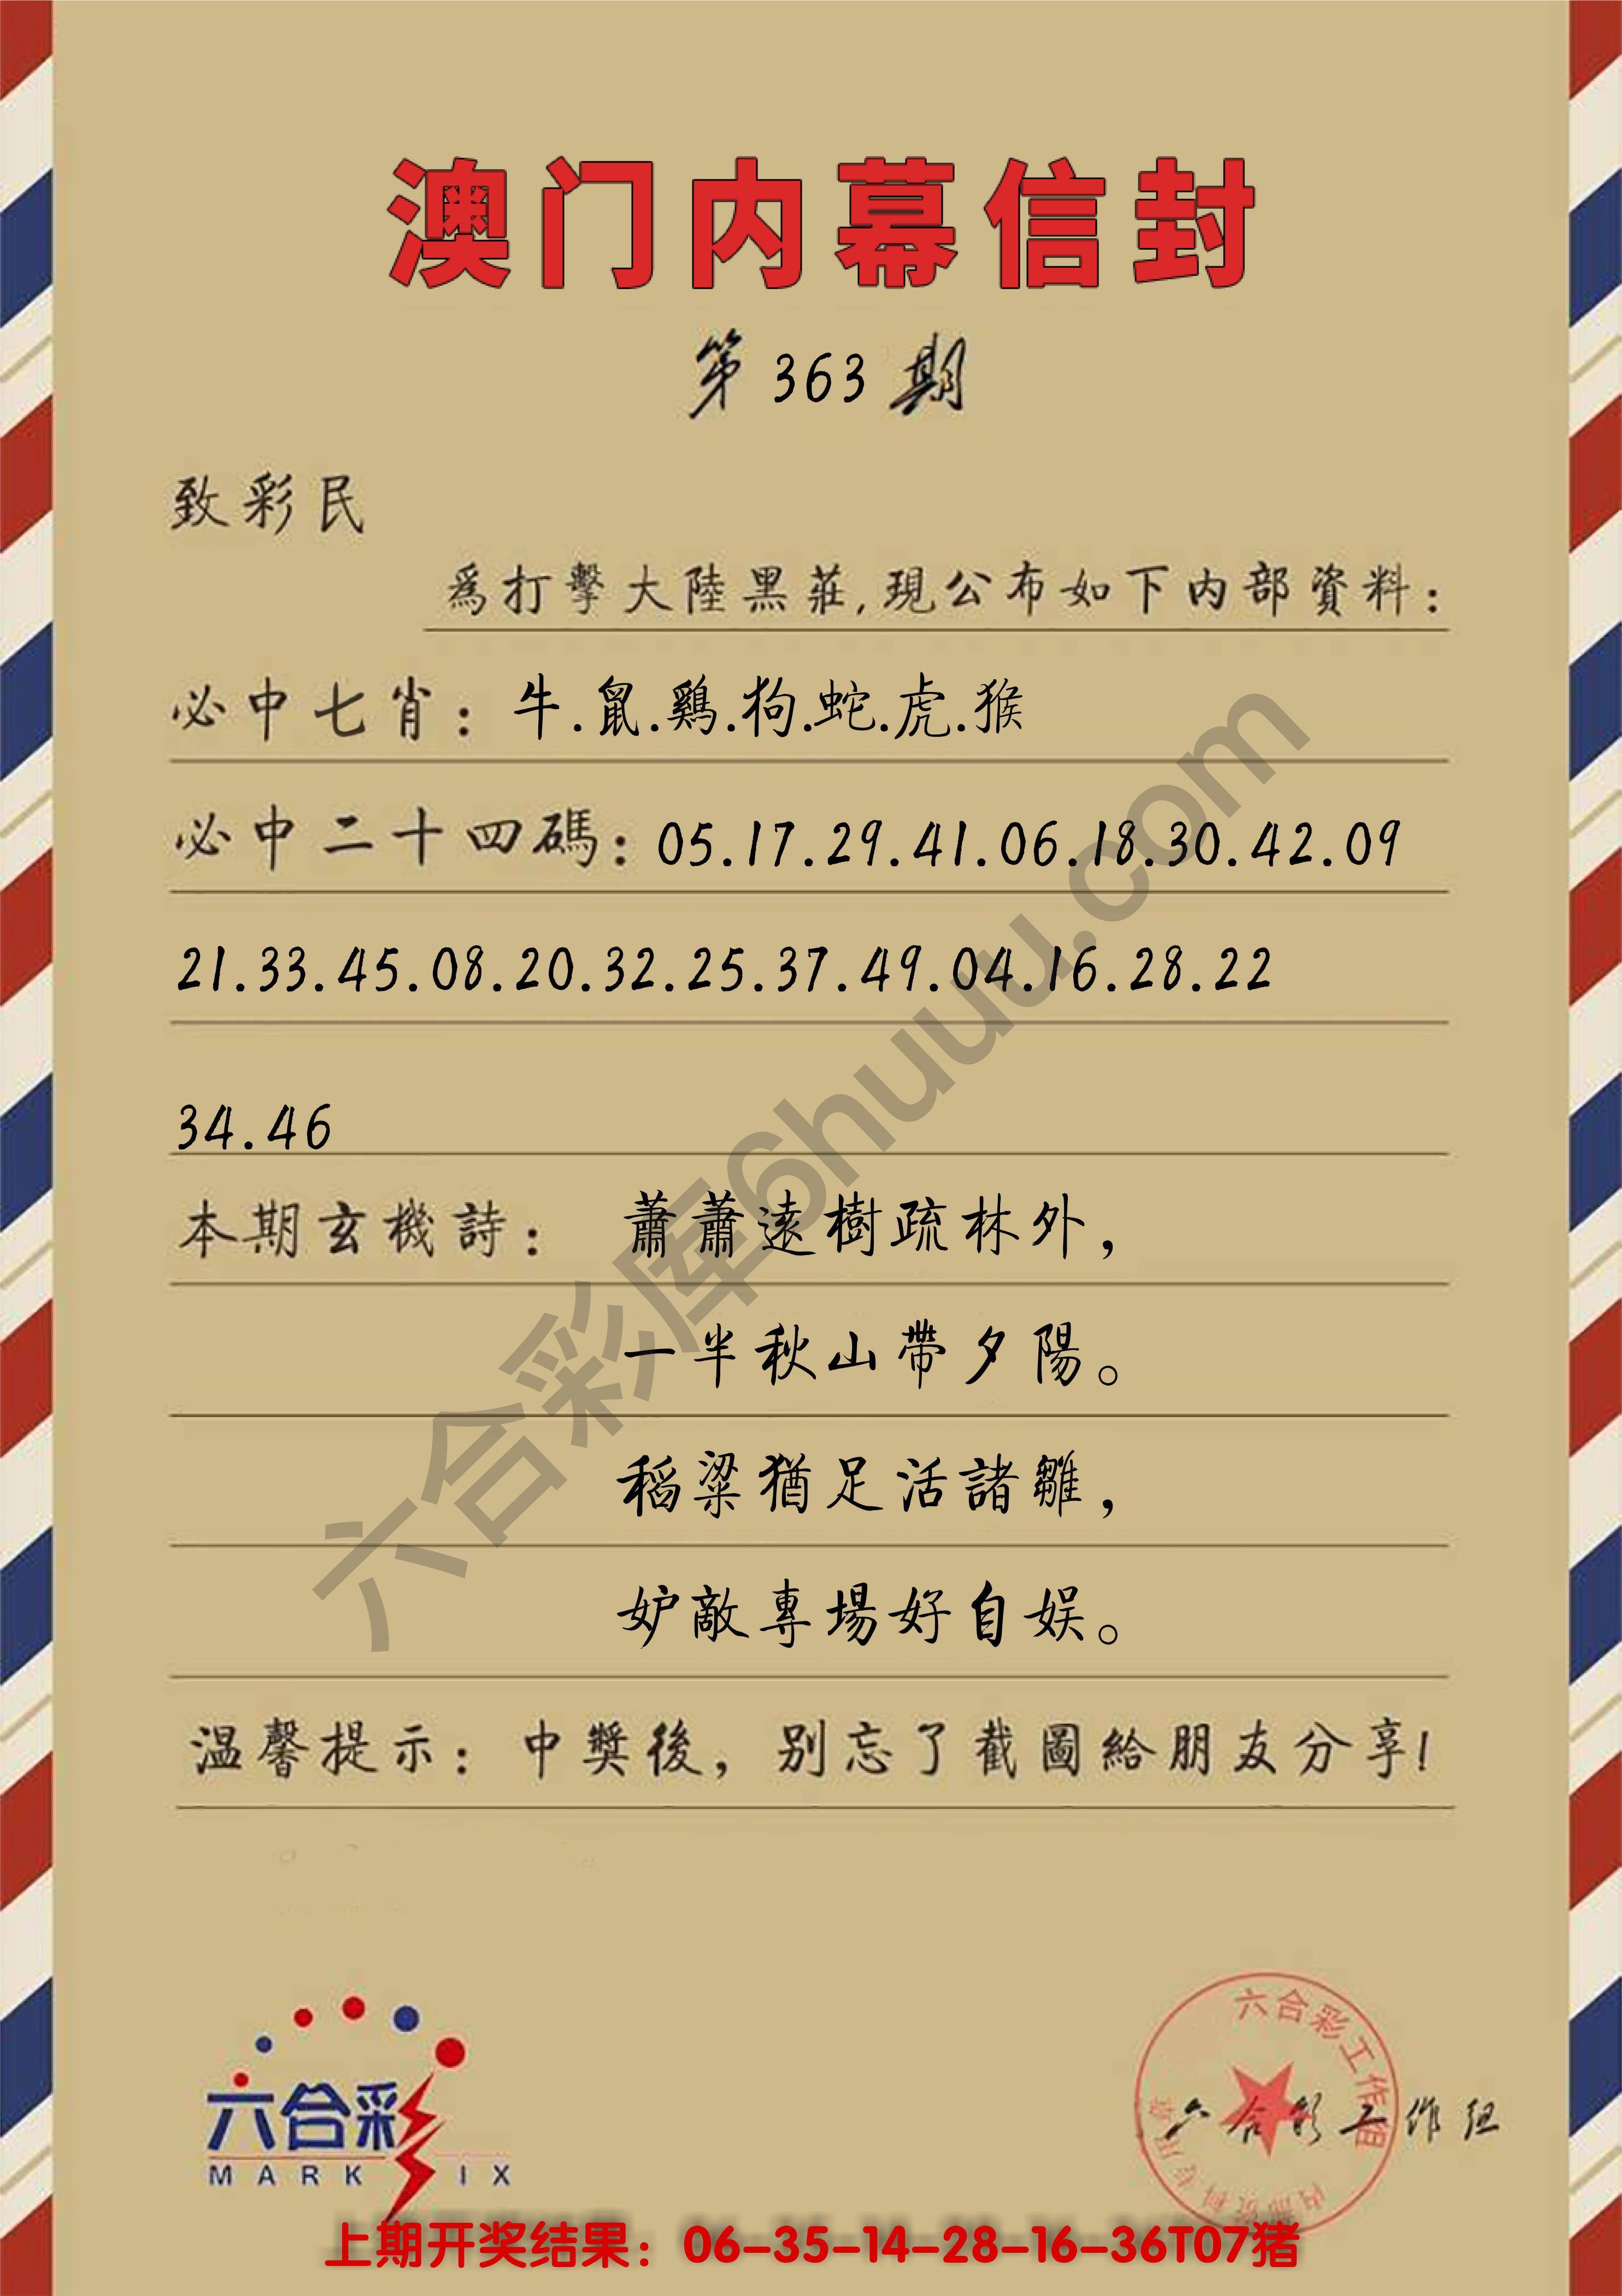 澳门内幕信封
第363期
致彩民
為打擊大陸黑莊,現公布如下内部資料:
必中七肖: 牛.鼠.鷄.狗.蛇.虎.猴
必中二十四碼: 05.17.29.41.06.18.30.42.09
21.33.45.08.20.32.25.37.49.04.16.28.22
34.46
本期玄機詩: 蕭蕭遠樹疏林外,
一半秋山帶夕陽。
稻粱猶足活諸雛,
妒敵專場好自娱。
温馨提示: 中獎後, 别忘了截圖給朋友分享!
六合彩库6huuu.com
六合彩
MARK IX
六合彩工作组
六合彩工作组
上期开奖结果: 06-35-14-28-16-36T07猪